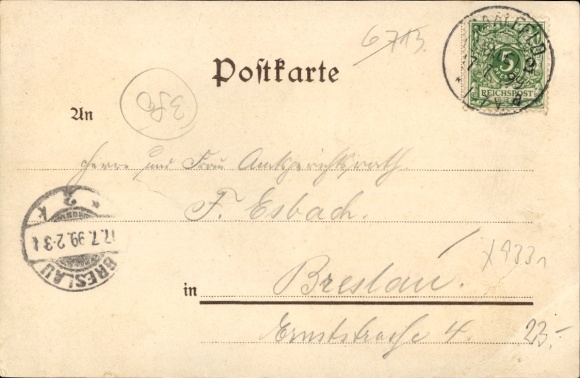 6713.
SAALFELD
5
REICHSPOST
Postkarte
350
An
Herrn und Frau Amtsgerichtsrath
F. Esbach.
* 2 k
17.7.99.2-3 N
BRESLAU
x 9331
in Breslau.
Ernststrasse 4.
23.-